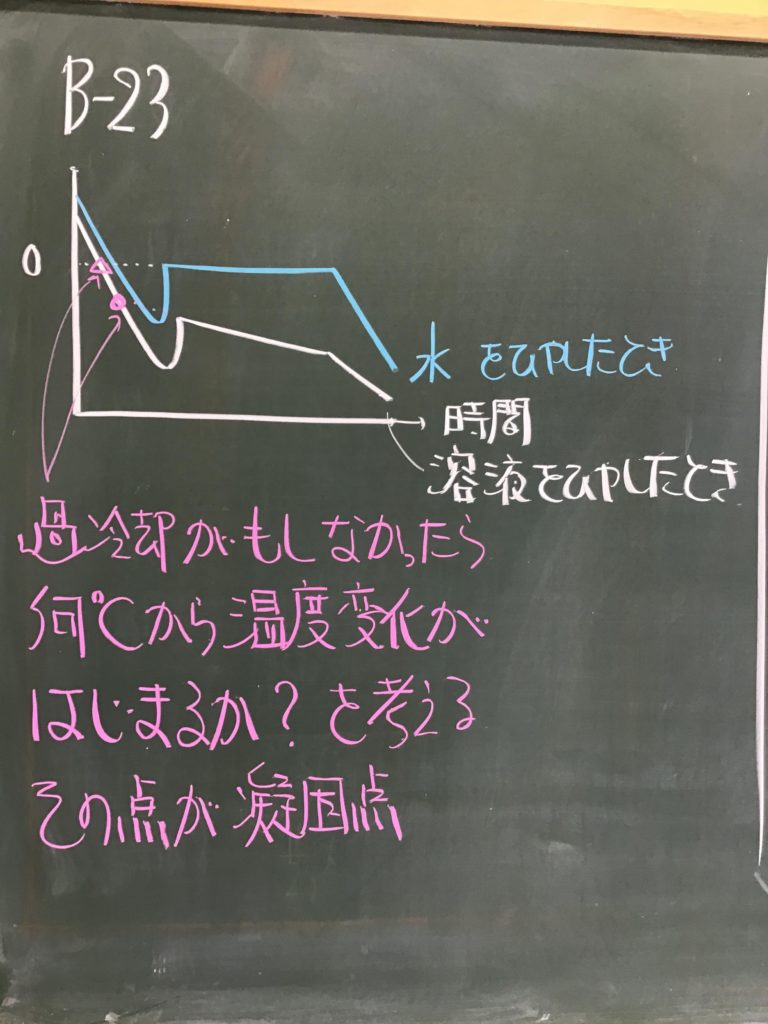 B-23
0
水をひやしたとき
時間
溶液をひやしたとき
過冷却がもしなかったら
何℃から温度変化が
はじまるか?を考える
その点が凝固点